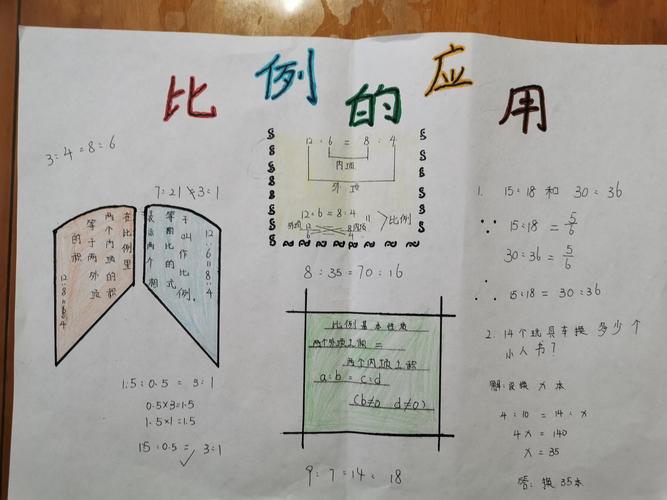 比例的应用
3:4=8:6
7:21 3:1
在比例里
两个内项的积
等于两外项
的积
12:8=6:4
12:6=8:4
子叫作比例。
等图比的式
表示两个相
1.5:0.5=3:1
0.5×3=1.5
1.5×1=1.5
15:0.5=3:1
12:6=8:4
内项
外项
12:6=8:4
比例
外项 12 8 内项
6 4
8:35=70:16
比例基本性质
两个外项之积=
两个内项之积
a:b=c:d
(b≠0 d≠0)
9:7=14:18
1. 15:18 和 30:36
∵ 15:18=5/6
30:36=5/6
∴ 15:18=30:36
2. 14个玩具车换多少个
小人书?
解:设换x本
4:10=14:x
4x=140
x=35
答:换35本